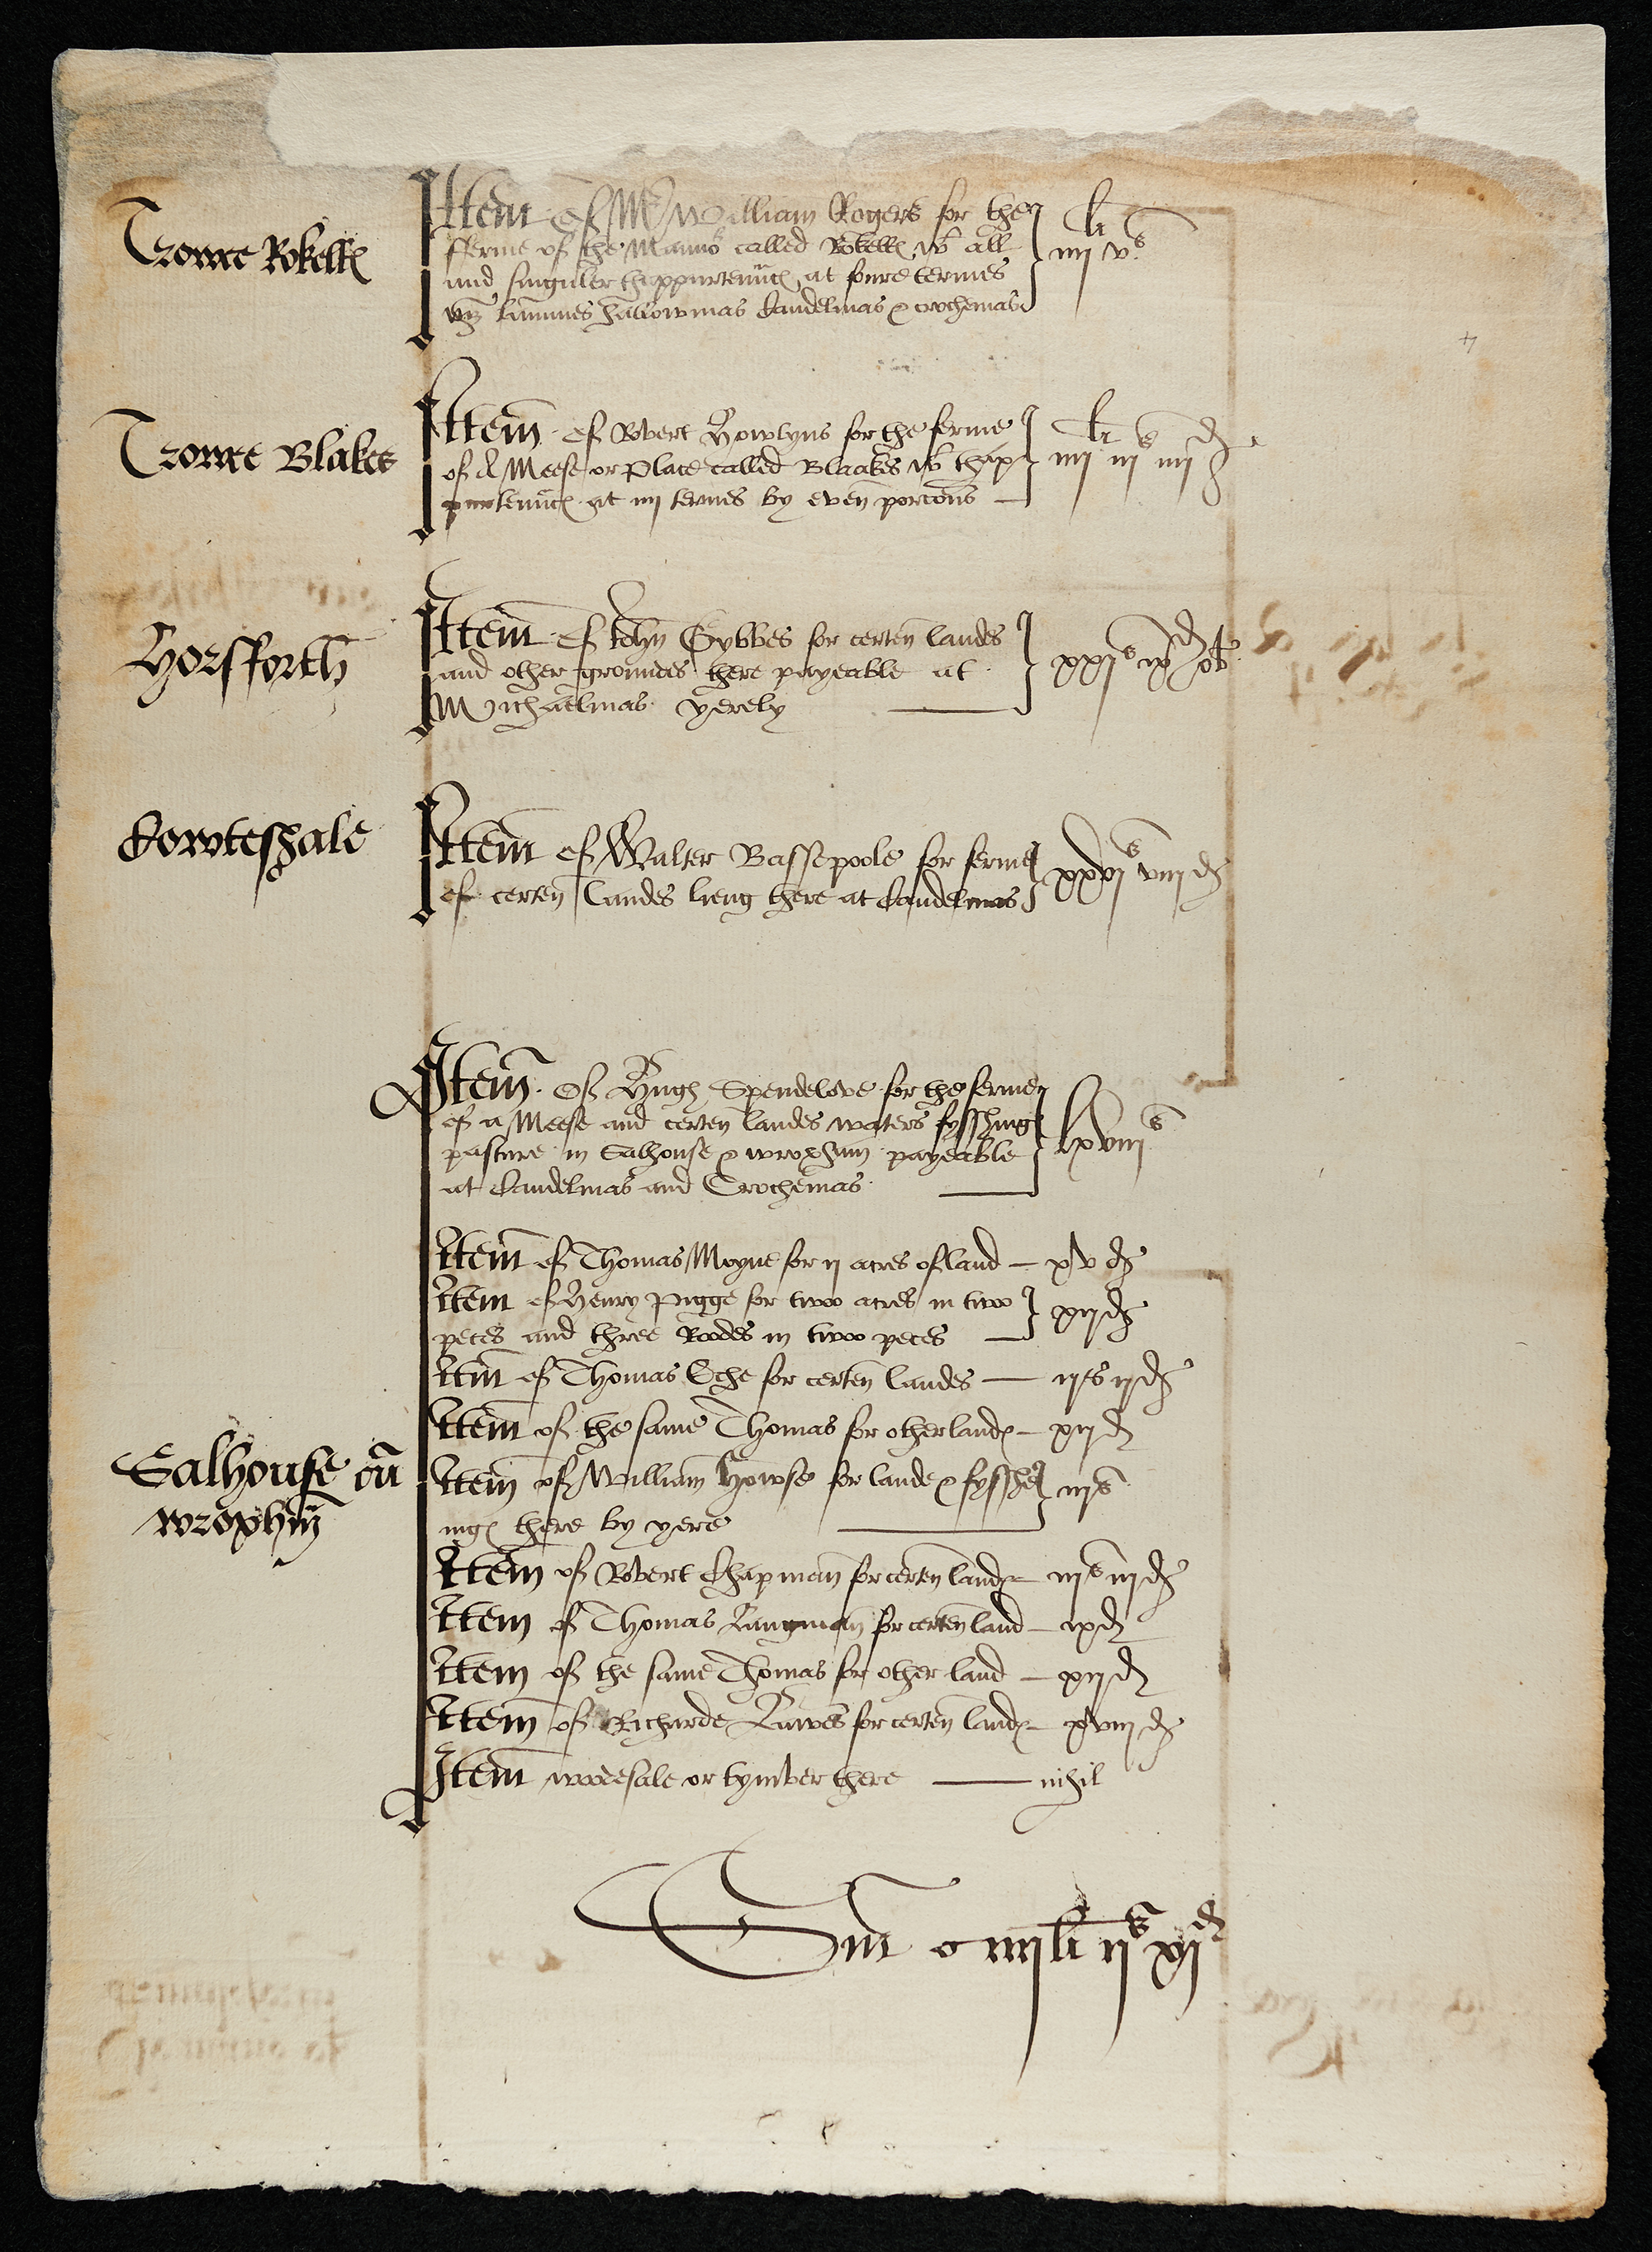 Trowce Rokellƺ
Item Of Mr William Rogers for the
fferme of the Mannor called Rokellƺ wt all
and singuler thappurtennncƺ at foure termes
viz Lammes Hallowmas Candelmas & Crochemas
li
iiij vs
Trowce Blakes
Item Of Robert Howlyns for the ferme
of A Meese or Place called Blaakes wt thap
purtenncƺ at iiij termes by even porcons
li s d
iiij iij iiij
Horsfforth
Item Of John Gybbes for certen landes
and other groundes there payeable at
Michaelmas yerely
xxijs ixd ob
Cowteshale
Item of Walter Bassepoole for ferme
of certen Landes lieng there at Candelmas
xxvjs viijd
Item Of Hugh Spendelove for the ferme
of a Meese and certen landes waters fysshing
pasture in Salhouse & wroxham payeable
at Candelmas and Crochemas
lxviijs
Item of Thomas Moyne for ij acres of land — xv d
Item of Henry Pigge for twoo acres in twoo
peces and three Roodes in twoo peces
xijd
Itm of Thomas Eche for certen landes — ijs ijd
Item of the same Thomas for other landƺ — xijd
Salhouse cu
wroxhm
Item of William Howse for lande & fysshe
ingƺ there by yere
iijs
Item of Robert Chapman for certen landƺ — iijs iiijd
Item of Thomas Langman for certen land — ixd
Item of the same Thomas for other land — xijd
Item of Richarde Lawes for certen landƺ — xviij d
Item woodesale or tymber there — nihil
Sm iiijli ijs xjd